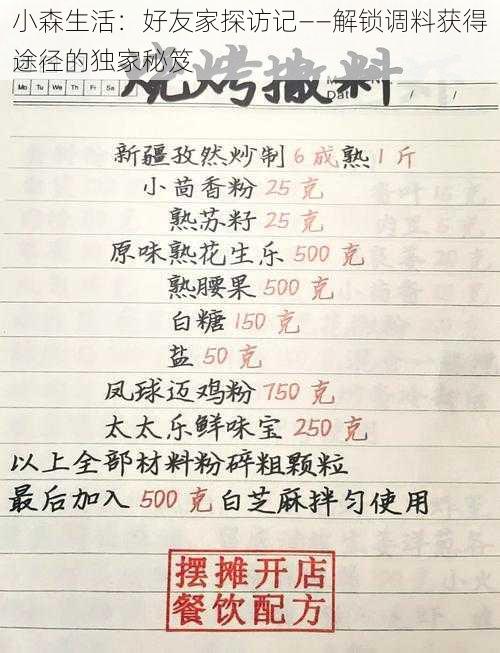 小森生活：好友家探访记——解锁调料获得
途径的独家秘笈
烧烤撒料
Mo Tu We Th Fr Sa
Date / /
新疆孜然炒制6成熟1斤
小茴香粉25克
熟苏籽25克
原味熟花生乐500克
熟腰果500克
白糖150克
盐50克
凤球迈鸡粉750克
太太乐鲜味宝250克
以上全部材料粉碎粗颗粒
最后加入500克白芝麻拌匀使用
摆摊开店
餐饮配方